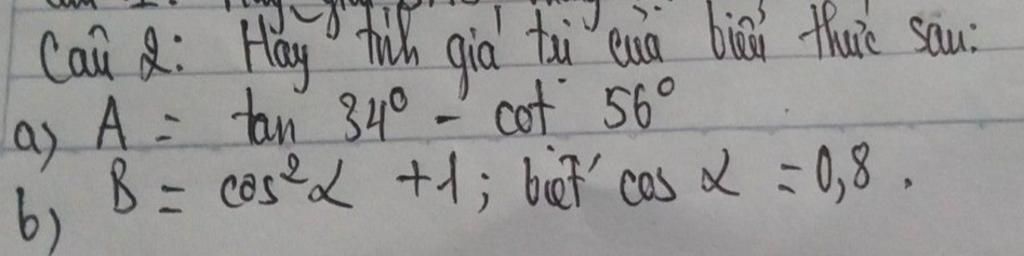 Câu 2: Hãy tính giá trị của biểu thức sau:
a) A = tan 34° - cot 56°
b) B = cos²α + 1; biết cos α = 0,8.